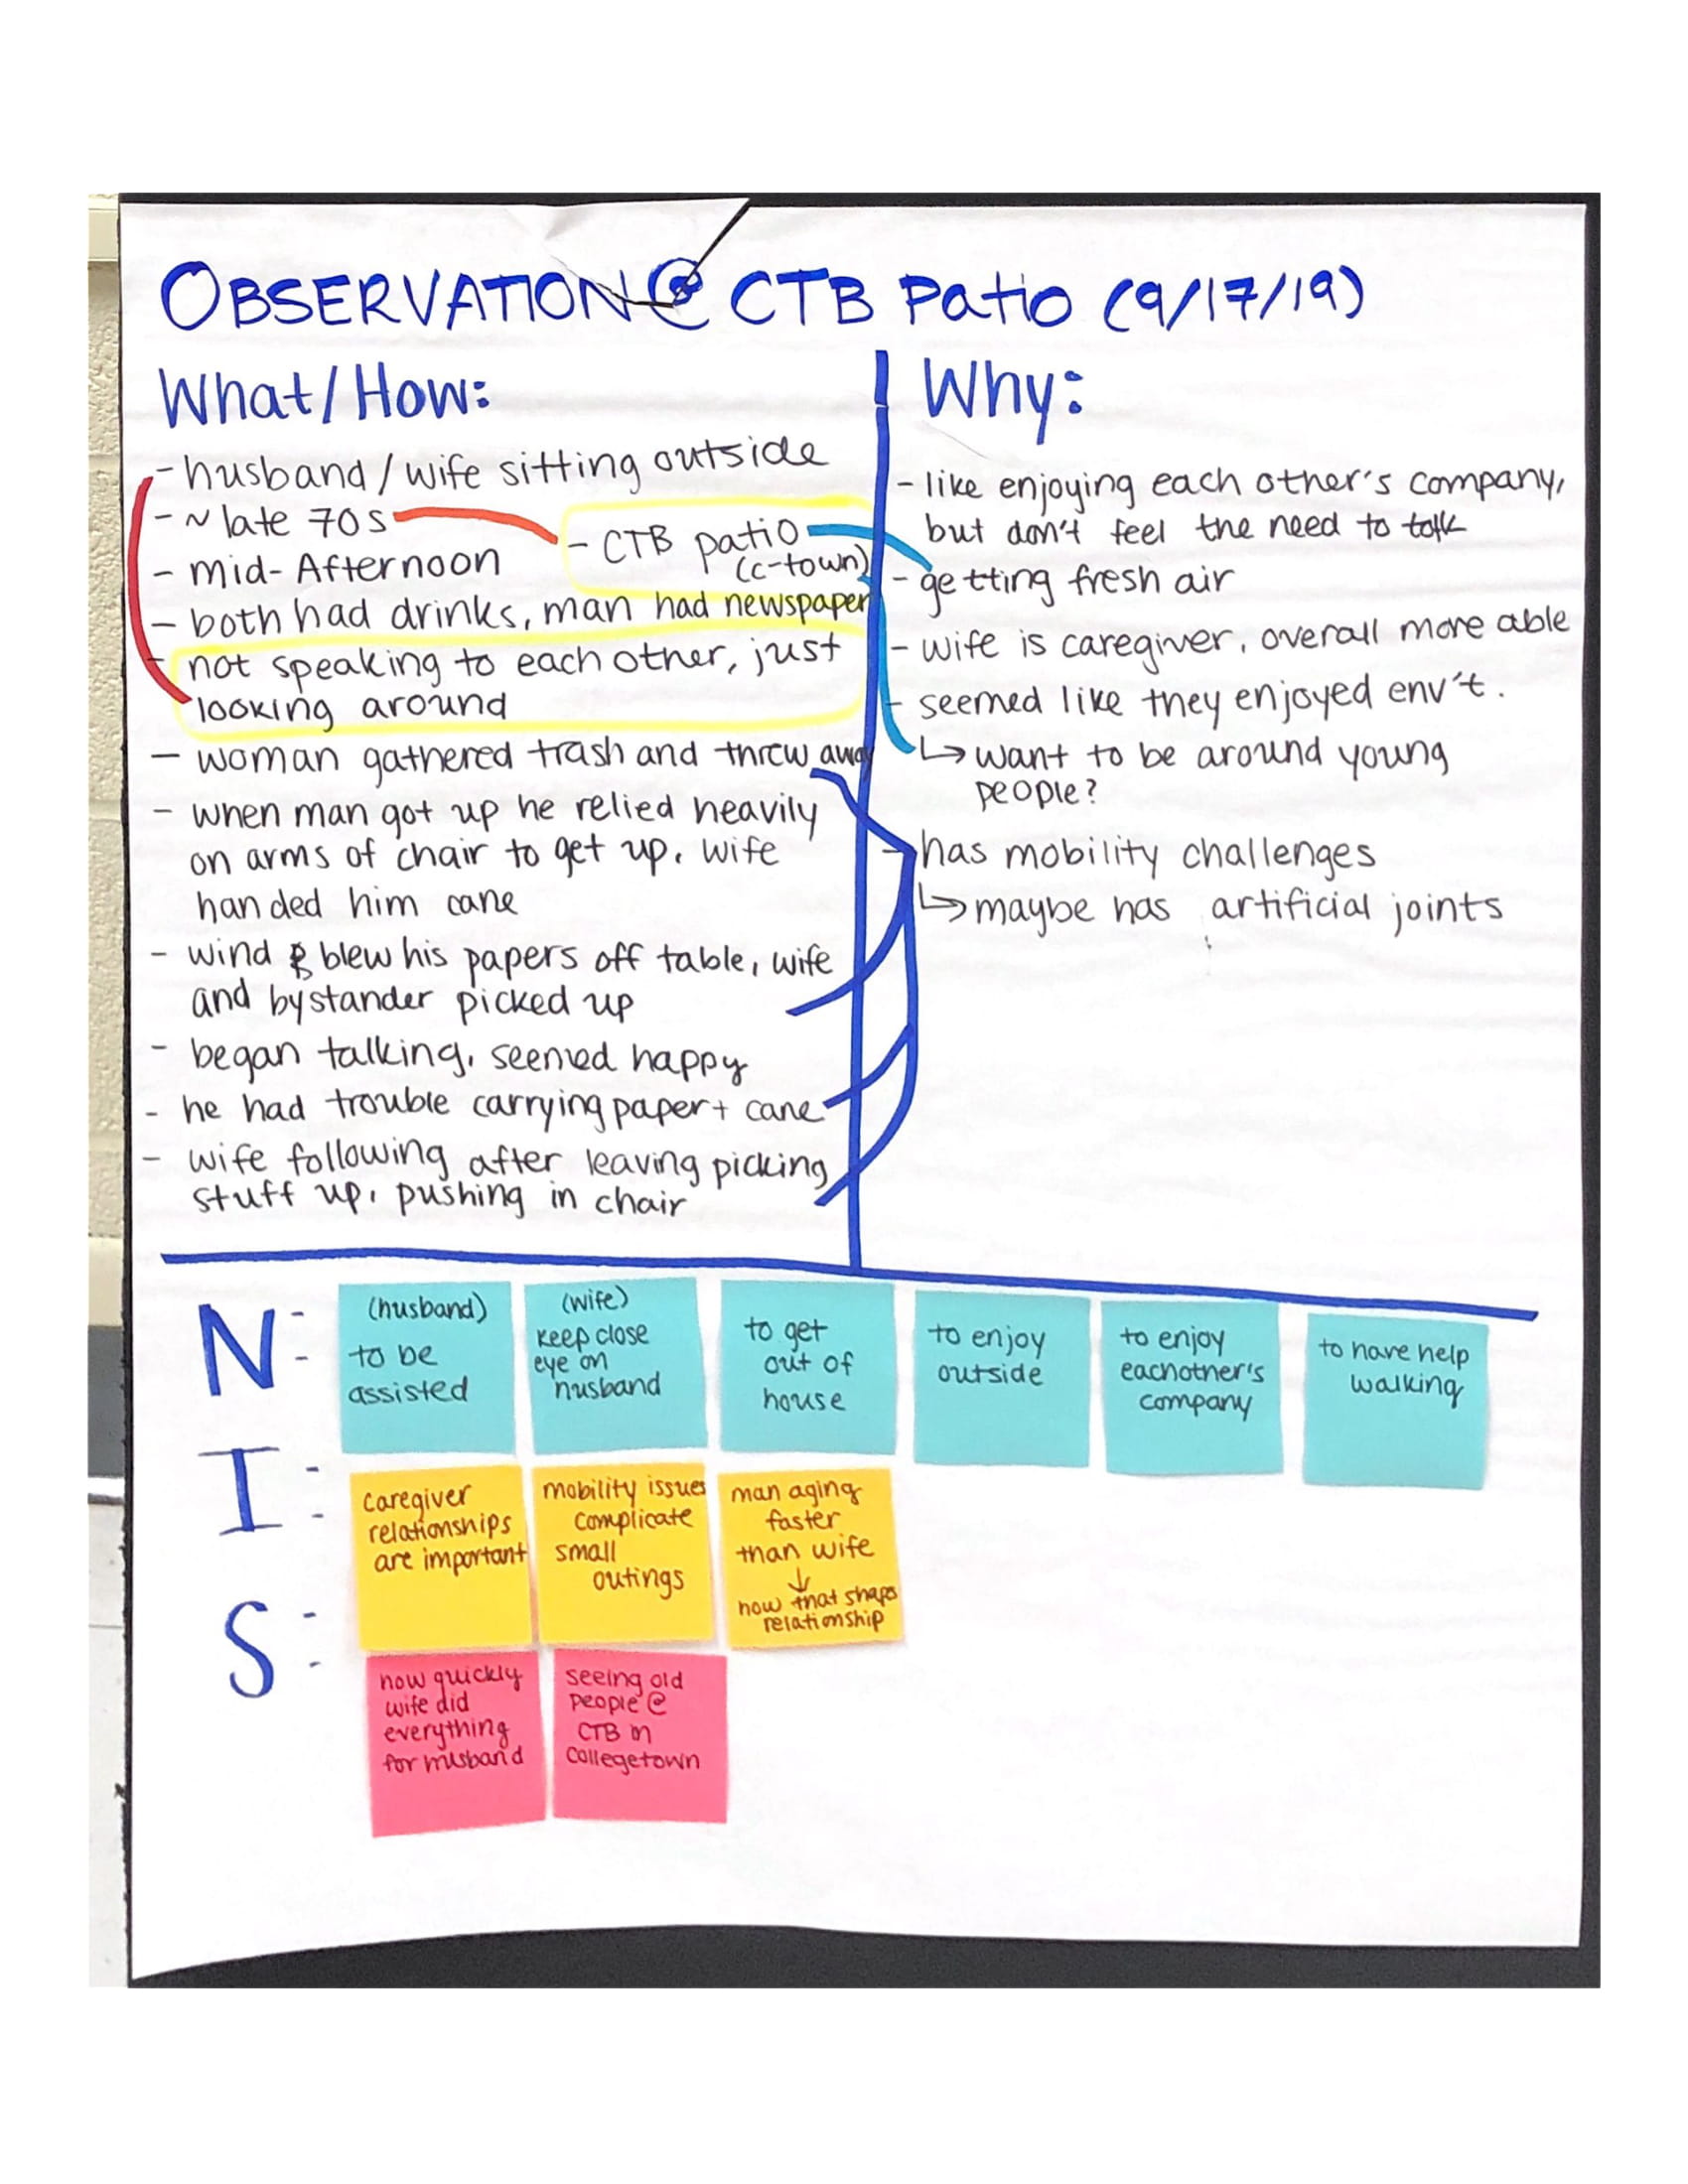 OBSERVATION @ CTB Patio (9/17/19)
What/How:
- husband/wife sitting outside
- ~ late 70s
- CTB patio
(c-town)
- mid-Afternoon
- both had drinks, man had newspaper
- not speaking to each other, just
looking around
- woman gathered trash and threw away
- when man got up he relied heavily
on arms of chair to get up, wife
handed him cane
- wind blew his papers off table, wife
and bystander picked up
- began talking, seemed happy
- he had trouble carrying paper + cane
- wife following after leaving picking
stuff up, pushing in chair
Why:
- like enjoying each other's company,
but don't feel the need to talk
- getting fresh air
- wife is caregiver, overall more able
- seemed like they enjoyed env't.
↳ want to be around young
people?
- has mobility challenges
↳ maybe has artificial joints
N:
(husband)
to be
assisted
(wife)
keep close
eye on
husband
to get
out of
house
to enjoy
outside
to enjoy
eachother's
company
to have help
walking
I:
caregiver
relationships
are important
mobility issues
complicate
small
outings
man aging
faster
than wife
↓
how that shaps
relationship
S:
how quickly
wife did
everything
for husband
seeing old
people @
CTB in
Collegetown